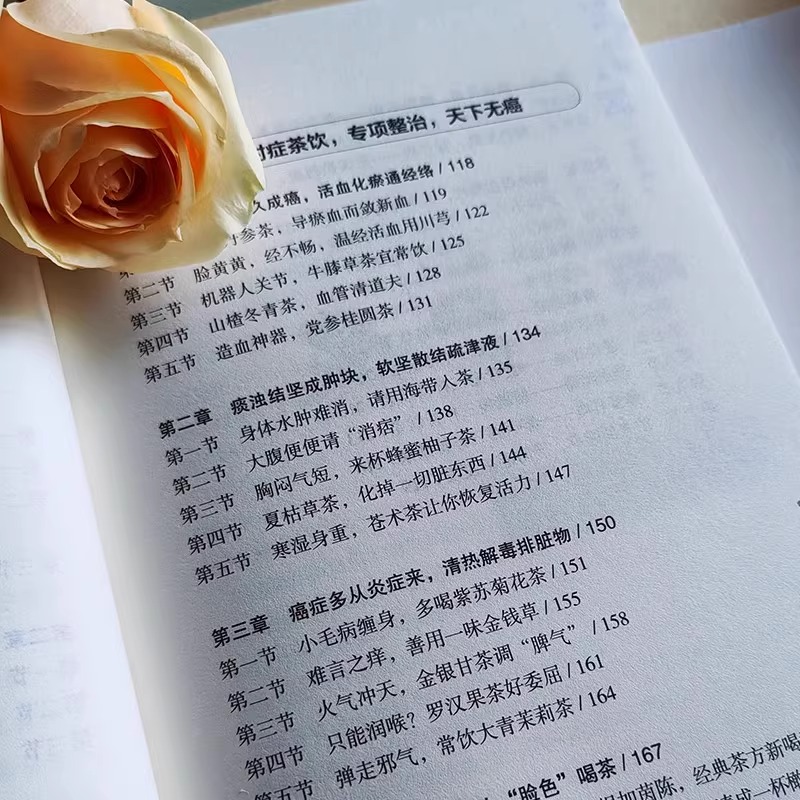 症茶饮，专项整治，天下无癌
久成癌，活血化瘀通经络 / 118
参茶，导瘀血而敛新血 / 119
第二节 脸黄黄，经不畅，温经活血用川芎 / 122
第三节 机器人关节，牛膝草茶宜常饮 / 125
第四节 山楂冬青茶，血管清道夫 / 128
第五节 造血神器，党参桂圆茶 / 131
第二章 痰浊结坚成肿块，软坚散结疏津液 / 134
第一节 身体水肿难消，请用海带入茶 / 135
第二节 大腹便便请“消痞” / 138
第三节 胸闷气短，来杯蜂蜜柚子茶 / 141
第四节 夏枯草茶，化掉一切脏东西 / 144
第五节 寒湿身重，苍术茶让你恢复活力 / 147
第三章 癌症多从炎症来，清热解毒排脏物 / 150
第一节 小毛病缠身，多喝紫苏菊花茶 / 151
第二节 难言之痒，善用一味金钱草 / 155
第三节 火气冲天，金银甘茶调“脾气” / 158
第四节 只能润喉？罗汉果茶好委屈 / 161
第五节 弹走邪气，常饮大青茉莉茶 / 164
“脸色”喝茶 / 167
加茵陈，经典茶方新喝
成一杯